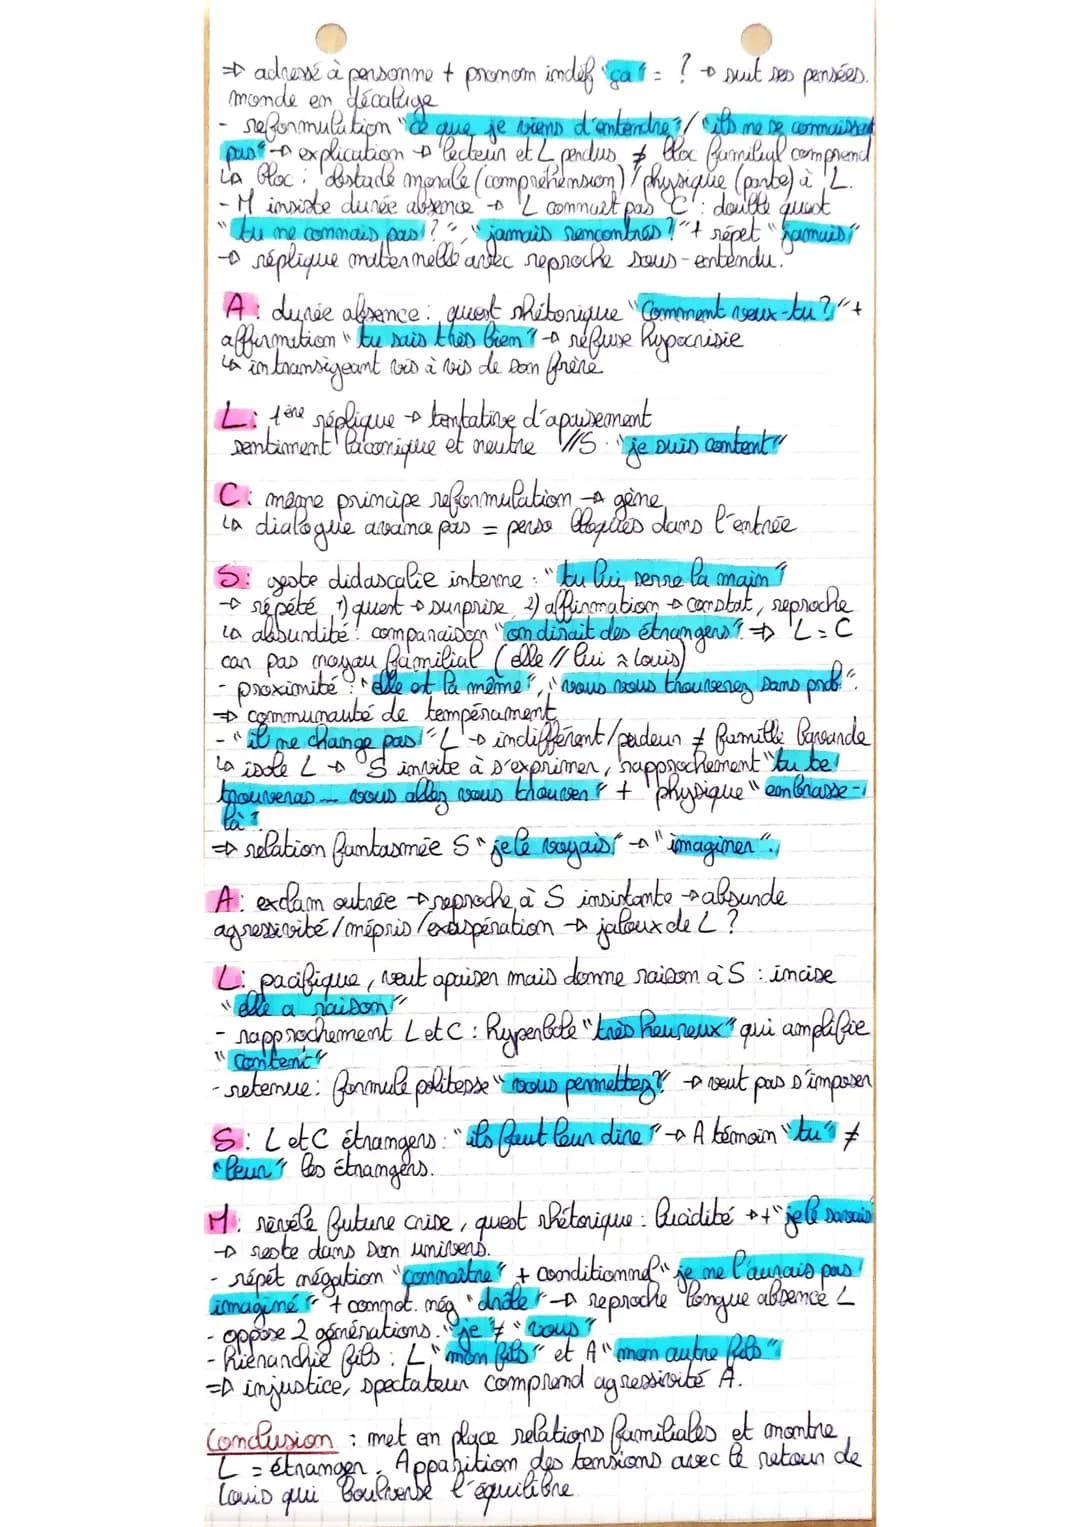 => adressé à personne + pronom indéf "ça" = ? → suit ses pensées.
monde en décalage
- reformulation "ce que je viens d'entendre"/ "ils ne se connaissent
pas" → explication → lecteur et L perdus ≠ bloc familial comprend
↳ bloc : obstacle morale (compréhension) / physique (porte) à L.
- M insiste durée absence → L connait pas C : double quest
"tu ne connais pas ?", "jamais rencontrés ?" + répet "jamais"
→ réplique maternelle avec reproche sous-entendu.
A : durée absence : quest rhétorique "Comment veux-tu ?" +
affirmation "tu sais très bien" → refuse hypocrisie
↳ intransigeant vis à vis de son frère
L : 1ère réplique → tentative d'apaisement
sentiment laconique et neutre //S "je suis content"
C : même principe reformulation → gène
↳ dialogue avance pas = perso bloqués dans l'entrée
S : geste didascalie interne : "tu lui serre la main"
→ répété 1) quest → surprise 2) affirmation → constat, reproche
↳ absurdité : comparaison "on dirait des étrangers" => L = C
car pas noyau familial (elle // lui ≈ Louis)
- proximité : "elle est la même", "vous vous trouverez sans prob".
=> communauté de tempérament
- "il ne change pas" L → indifférent/pudeur ≠ famille
↳ isole L → S invite à s'exprimer, rapprochement "tu te
trouveras ... vous allez vous trouver" + physique "embrasse-
la"
=> relation fantasmée S "je le voyais" → "imaginer".
A : exclam outrée → reproche à S insistante → absurde
agressivité / mépris / exaspération → jaloux de L ?
L : pacifique, veut apaiser mais donne raison à S : incise
"elle a raison"
- rapprochement L et C : hyperbole "très heureux" qui amplifie
"content"
- retenue : formule politesse "vous permettez ?" → veut pas s'imposer
S : L et C étrangers : "ils faut leur dire" → A témoin "tu" ≠
"leur" les étrangers.
M : révèle future crise, quest rhétorique : lucidité → + "je le savais
→ reste dans son univers.
- répét négation "connaître" + conditionnel "je ne l'aurais pas
imaginé" + connot. nég "drôle" → reproche longue absence L
- oppose 2 générations. "je" ≠ "vous"
- hiérarchie fils : L "mon fils" et A "mon autre fils"
=> injustice, spectateur comprend agressivité A.
Conclusion : met en place relations familiales et montre
L = étranger. Apparition des tensions avec le retour de
Louis qui boulverse l'équilibre